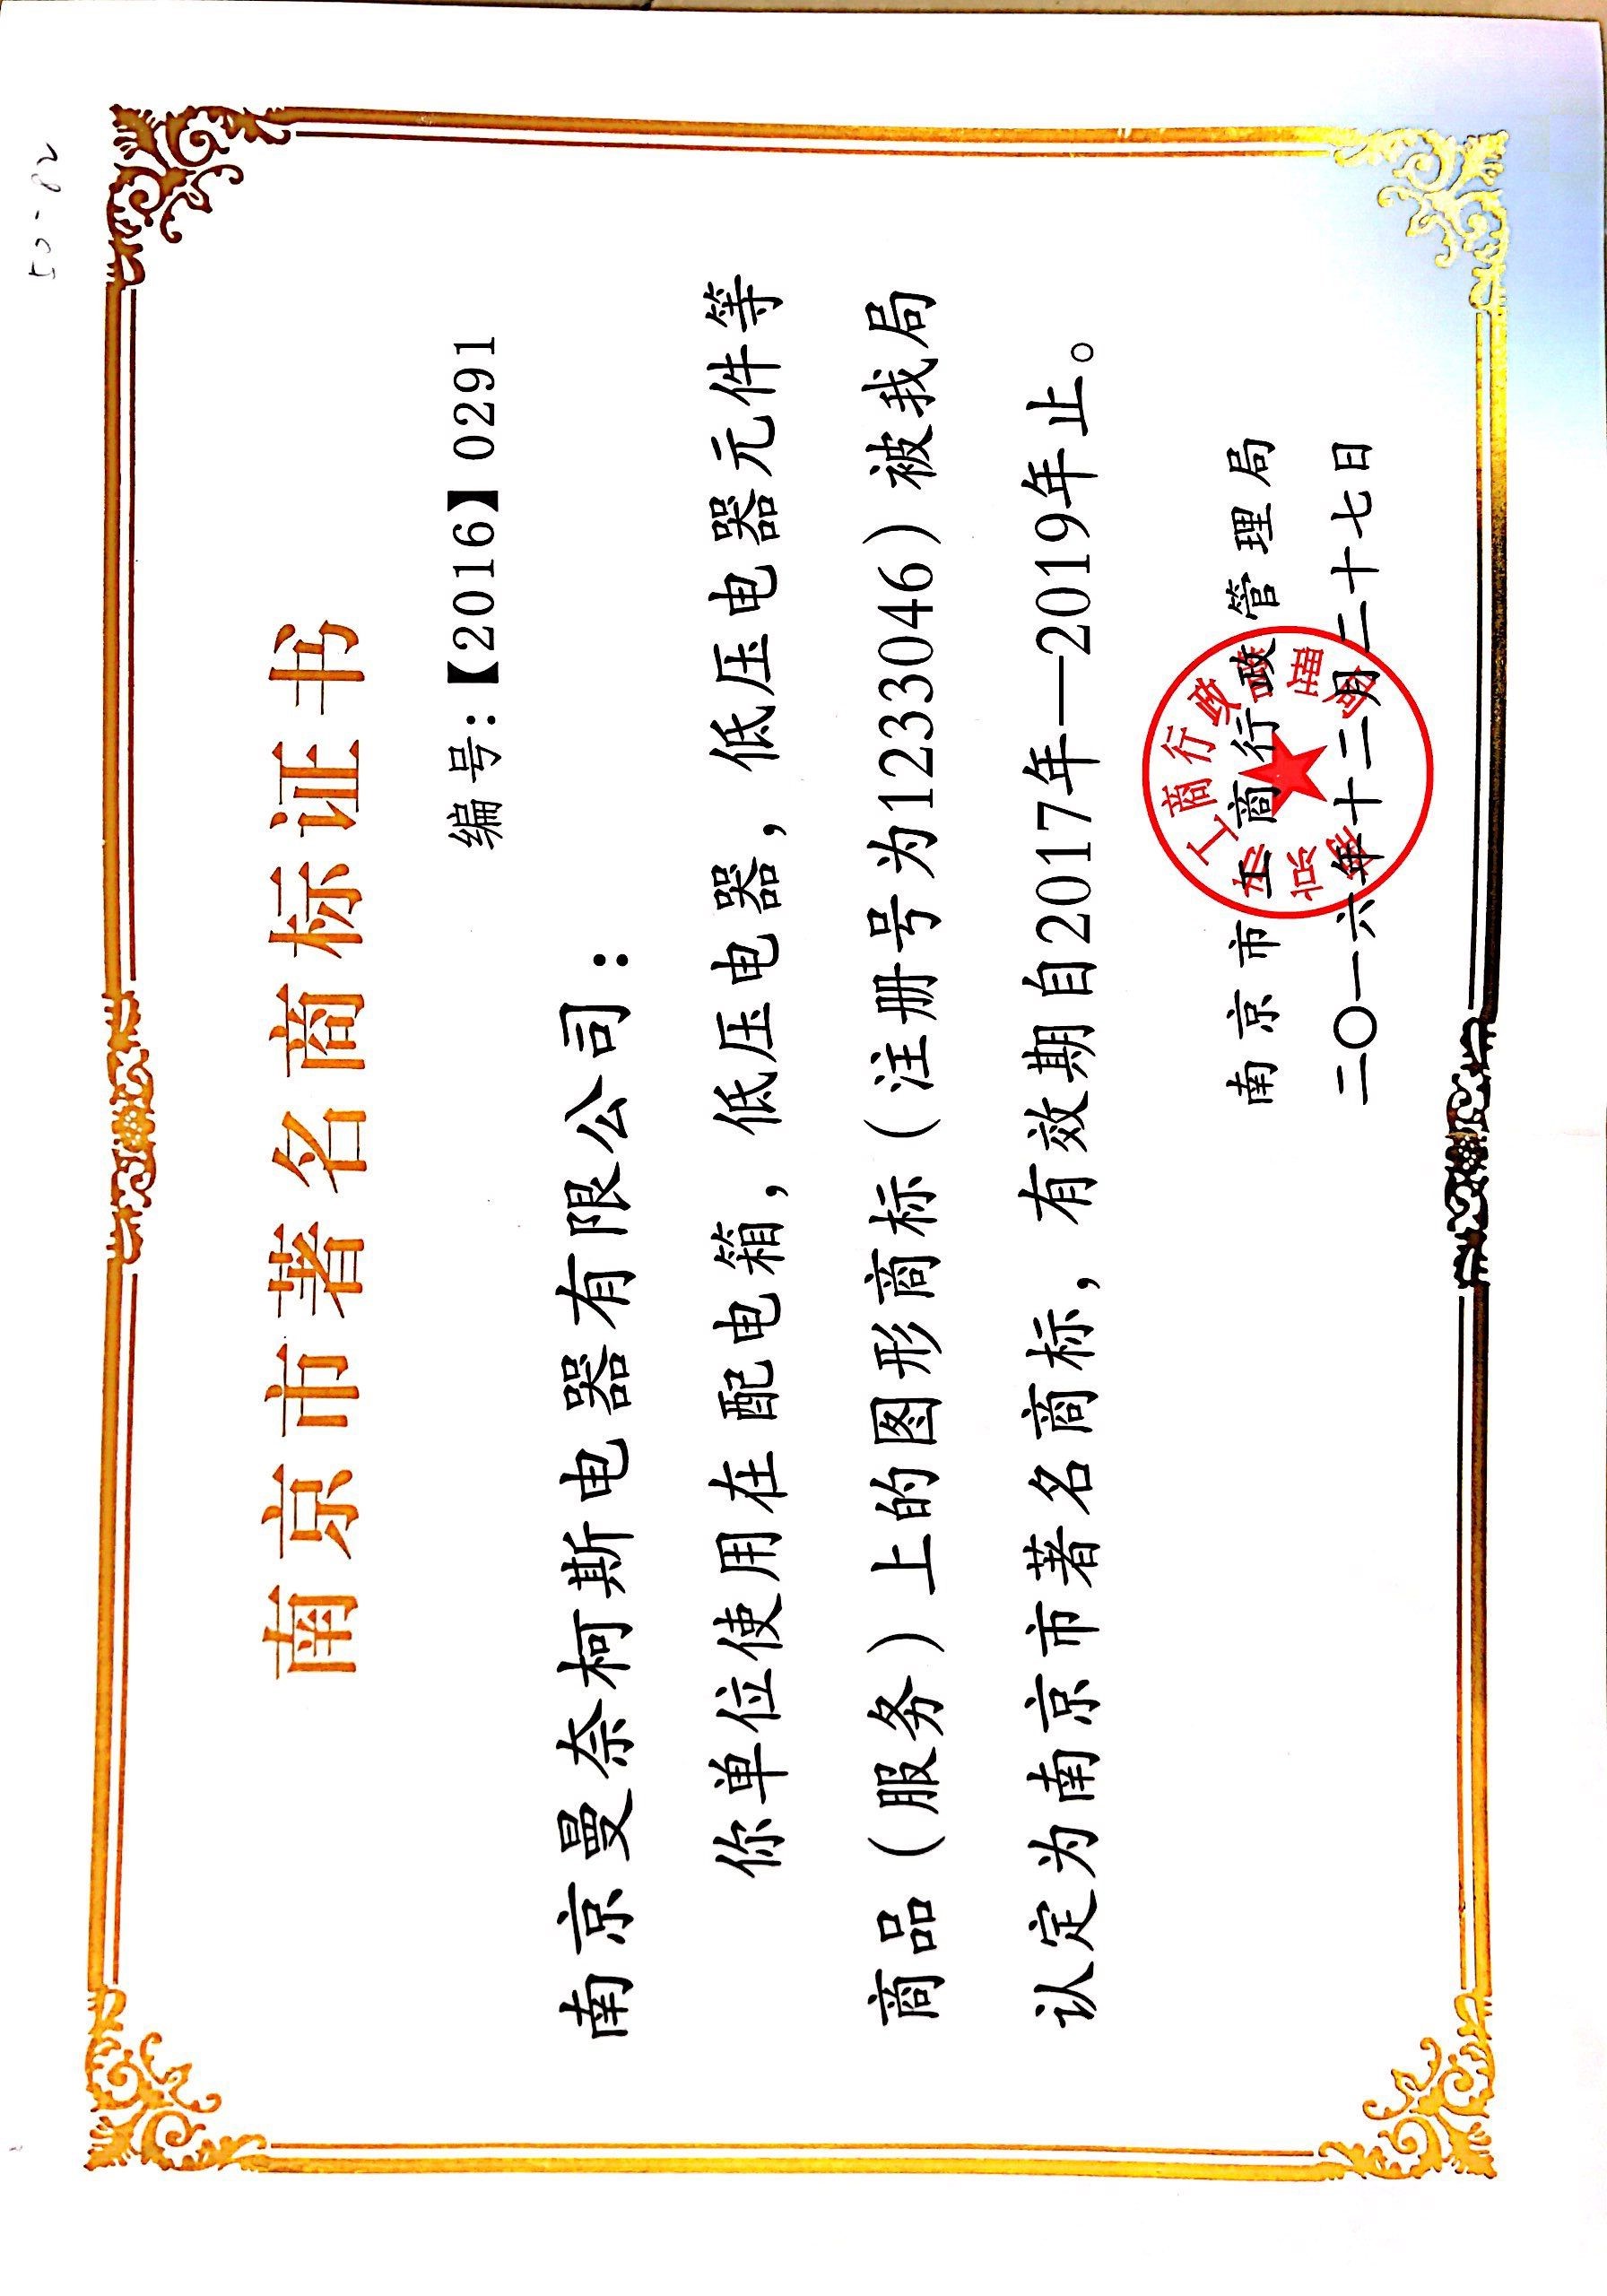 南京市著名商标证书
编号:【2016】0291
南京曼奈柯斯电器有限公司:
你单位使用在配电箱，低压电器，低压电器，低压电器元件等
商品（服务）上的图形商标（注册号为1233046）被我局
认定为南京市著名商标，有效期自2017年—2019年止。
南京市工商行政管理局
二〇一六年十二月二十七日